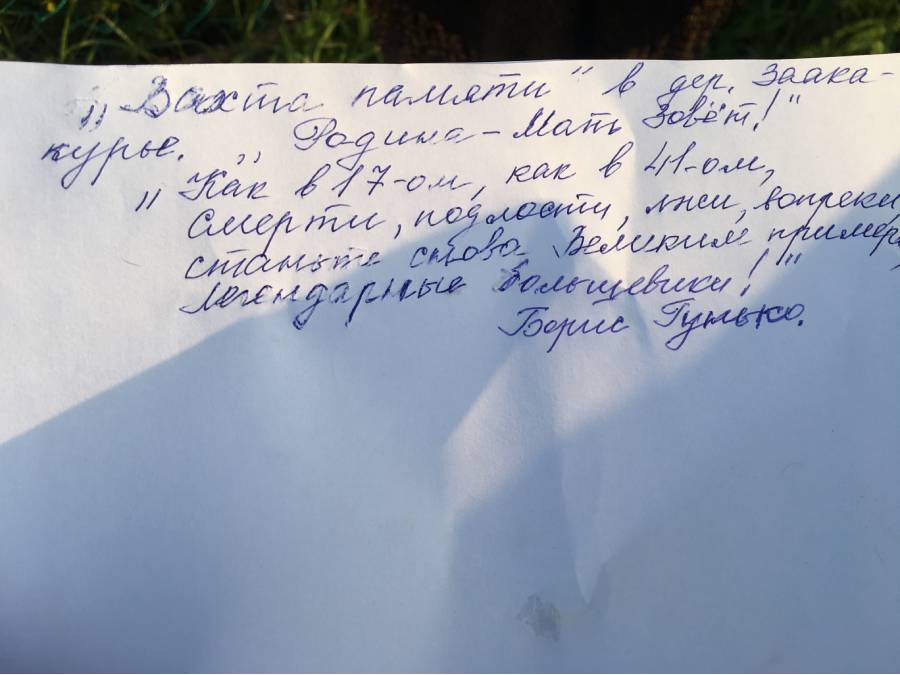 „Вахта памяти" в дер. Заака-
курье. „Родина-Мать Зовёт!"
„Как в 17-ом, как в 41-ом,
смерти, подлости, лжи, вопреки,
станьте снова Великим примером,
легендарные большевики!"
Борис Гунько.